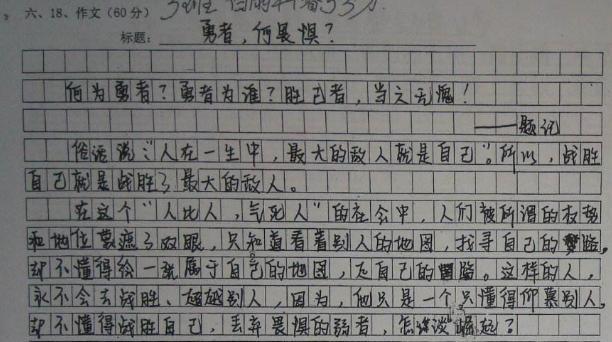 六、18、作文(60分)
标题: 勇者,何畏惧?
何为勇者?勇者为谁?胜己者,当之无愧!
——题记
俗话说:“人在一生中,最大的敌人就是自己”。所以,战胜
自己就是战胜了最大的敌人。
在这个“人比人,气死人”的社会中,人们被所谓的权势
和地位蒙蔽了双眼,只知道看着别人的地图,找寻自己的路,
却不懂得给一张属于自己的地图,走自己的路。这样的人,
永不会去战胜、超越别人,因为,他只是一个只懂得仰慕别人,
却不懂得战胜自己,丢弃畏惧的弱者,怎谈崛起?